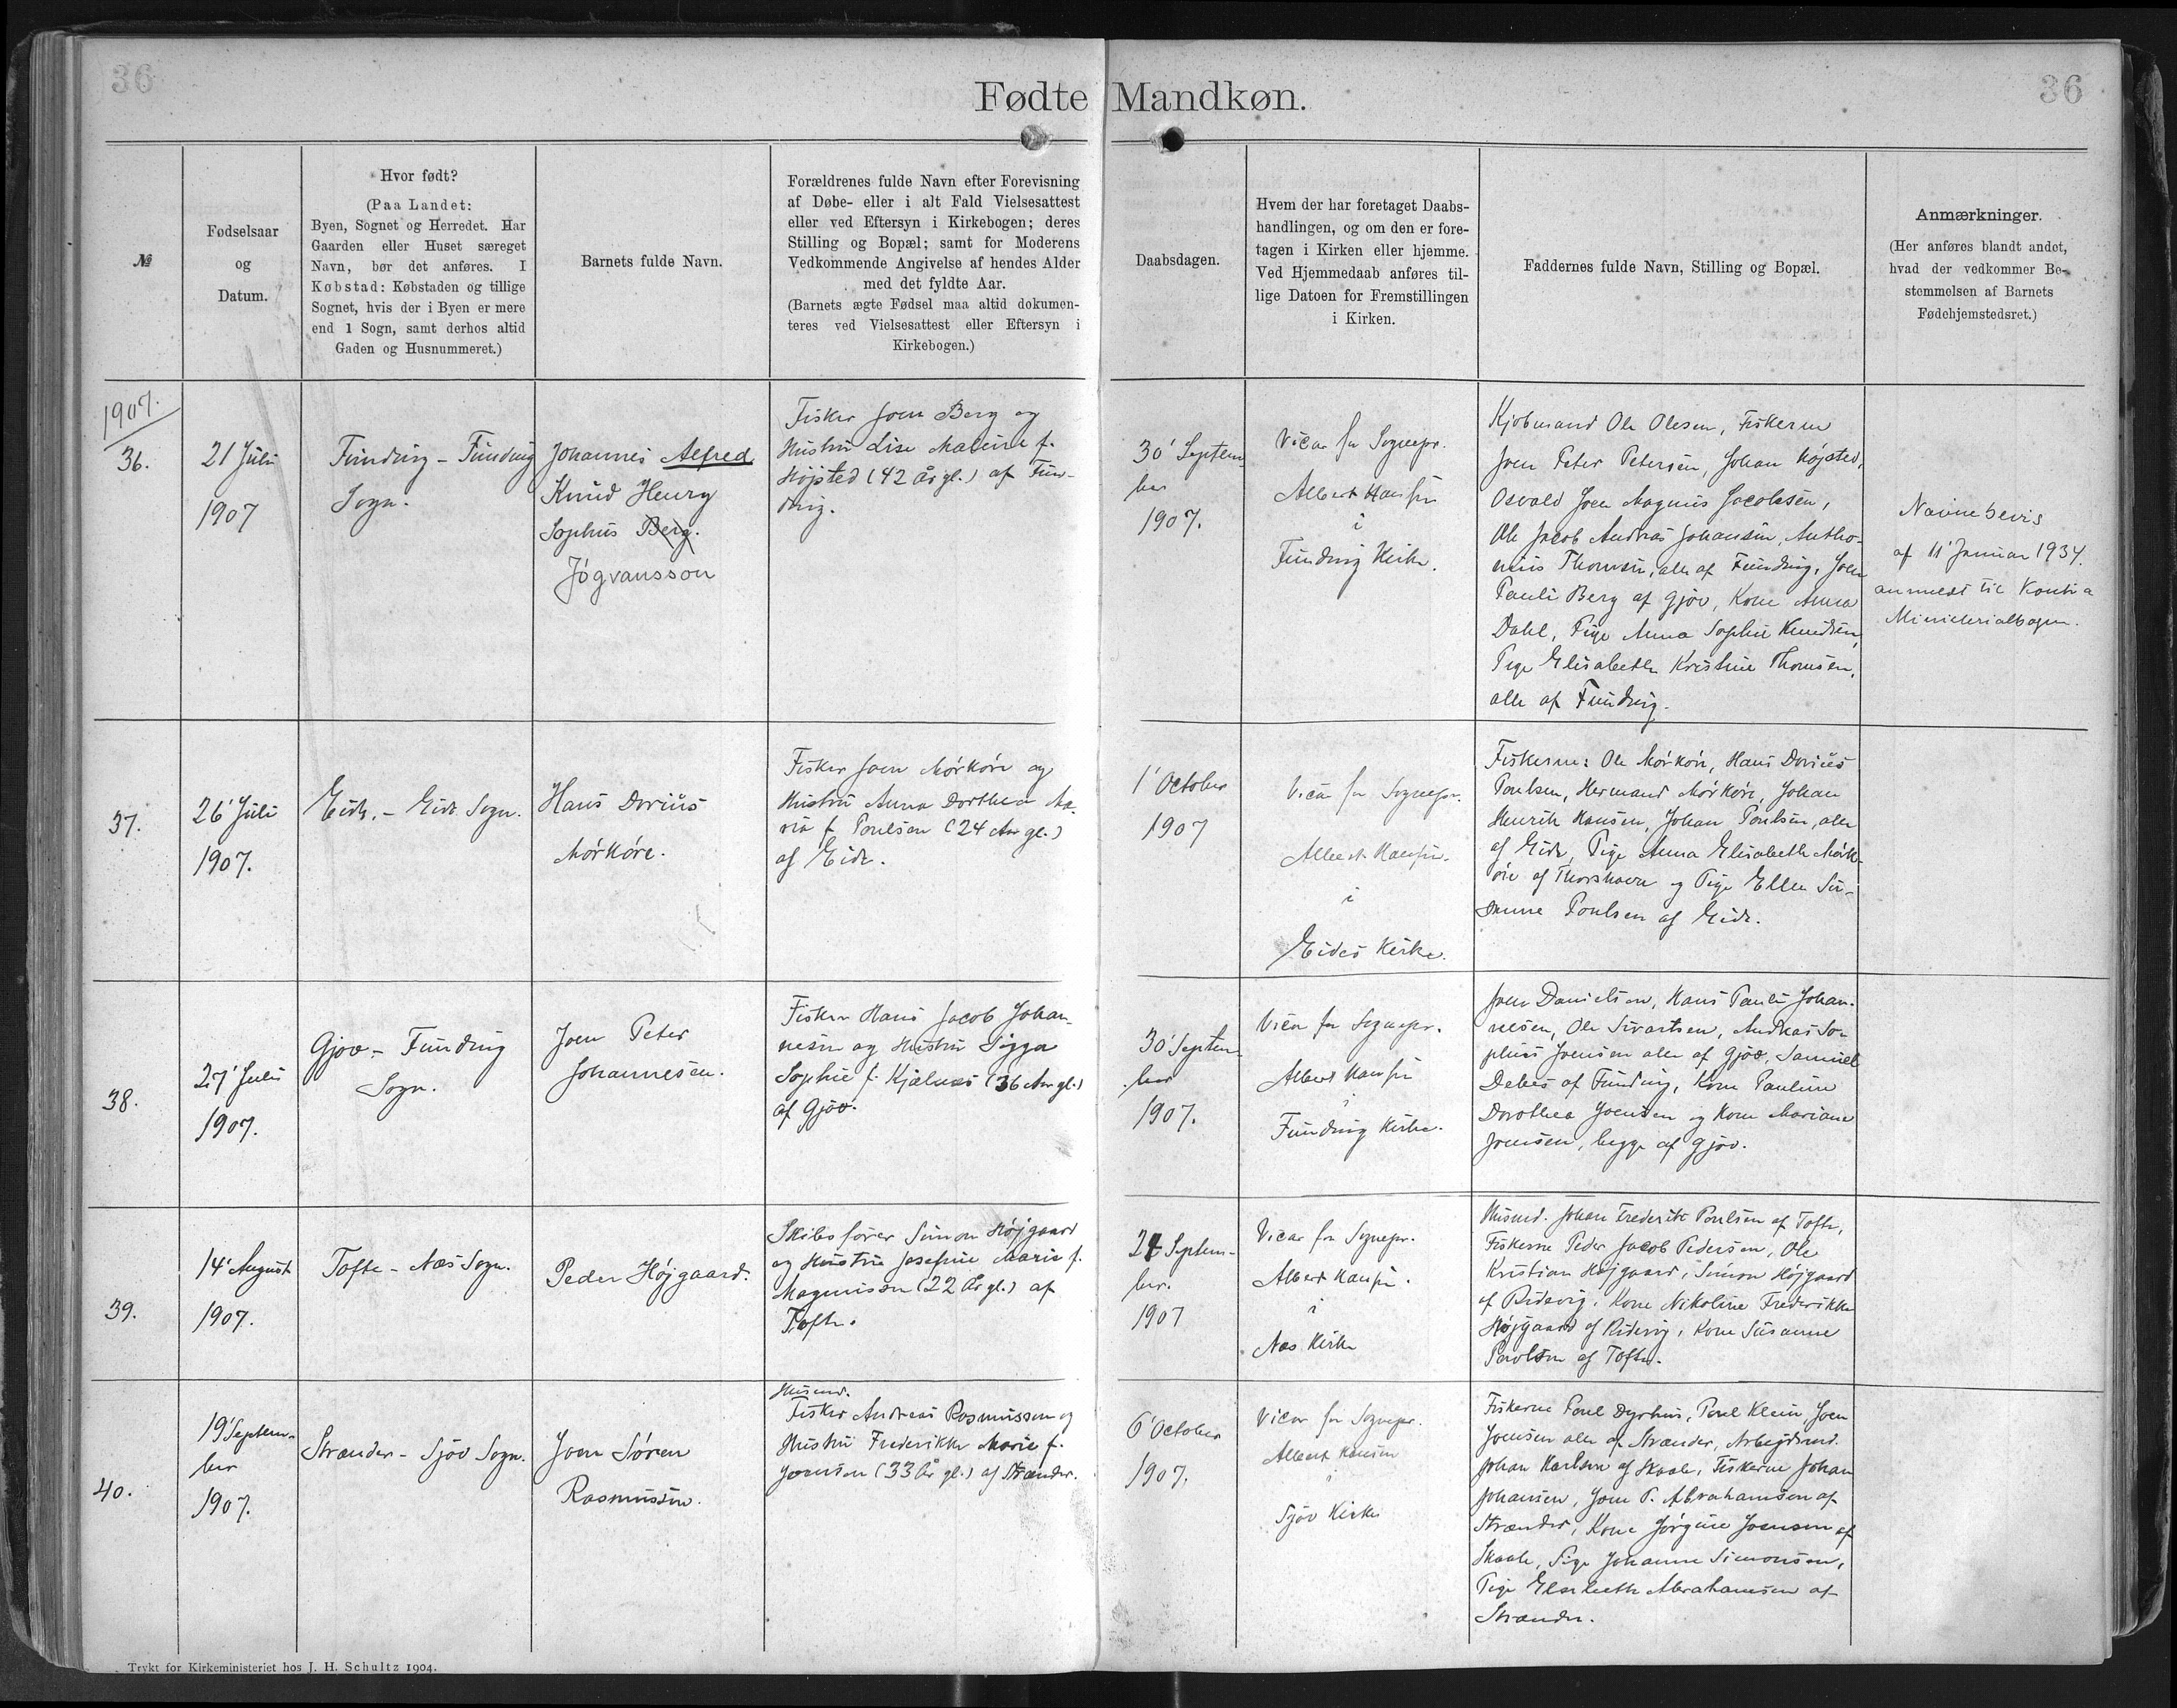 36
36
Fødte Mandkøn.
№
Fødselsaar
og
Datum.
Hvor født?
(Paa Landet:
Byen, Sognet og Herredet. Har
Gaarden eller Huset særeget
Navn, bør det anføres. I
Købstad: Købstaden og tillige
Sognet, hvis der i Byen er mere
end 1 Sogn, samt derhos altid
Gaden og Husnummeret.)
Barnets fulde Navn.
Forældrenes fulde Navn efter Forevisning
af Døbe- eller i alt Fald Vielsesattest
eller ved Eftersyn i Kirkebogen; deres
Stilling og Bopæl; samt for Moderens
Vedkommende Angivelse af hendes Alder
med det fyldte Aar.
(Barnets ægte Fødsel maa altid dokumen-
teres ved Vielsesattest eller Eftersyn i
Kirkebogen.)
Daabsdagen.
Hvem der har foretaget Daabs-
handlingen, og om den er fore-
tagen i Kirken eller hjemme.
Ved Hjemmedaab anføres til-
lige Datoen for Fremstillingen
i Kirken.
Faddernes fulde Navn, Stilling og Bopæl.
Anmærkninger.
(Her anføres blandt andet,
hvad der vedkommer Be-
stemmelsen af Barnets
Fødehjemstedsret.)
1907.
36.
21 Juli
1907
Funding - Funding
Sogn.
Johannes Alfred
Knud Henry
Sophus Berg.
Jógvansson
Fisker Joen Berg og
Hustru Lise Malene f.
Højsted (42 År gl.) af Fun-
ding.
30' Septem-
ber
1907.
Vicar for Sognepr.
Albert Hansen
i
Funding Kirke.
Kjøbmand Ole Olesen, Fiskerne
Joen Peter Petersen, Johan Højsted,
Osvald Joen Magnus Jacobsen,
Ole Jacob Andreas Johansen, Antho-
nius Thomsen, alle af Funding, Joen
Pauli Berg af Gjov, Kone Anna
Dahl, Pige Anna Sophie Knudsen,
Pige Elisabeth Kristine Thomsen,
alle af Funding.
Navnebevis
af 11' Januar 1934.
anmeldt til Kontra
Ministerialbogen.
37.
26' Juli
1907.
Eide. - Eide Sogn.
Hans Dorius
Mørkøre.
Fisker Joen Mørkøre og
Hustru Anna Dorthea Ma-
ria f. Poulsen (24 Aar gl.)
af Eide.
1' October
1907
Vicar for Sognepr.
Albert Hansen.
i
Eides Kirke.
Fiskerne: Ole Mørkøre, Hans Dorius
Poulsen, Hermand Mørkøre, Johan
Henrik Hansen, Johan Poulsen, alle
af Eide, Pige Anna Elisabeth Mørk-
øre af Thorshavn og Pige Ellen Su-
sanne Poulsen af Eide.
38.
27' Juli
1907.
Gjov - Funding
Sogn.
Joen Peter
Johannesen.
Fisker Hans Jacob Johan-
nesen og Hustru Sigga
Sophie f. Kjælnæs (36 Aar gl.)
af Gjov.
30' Septem-
ber
1907.
Vicar for Sognepr.
Albert Hansen
i
Funding Kirke.
Joen Danielsen, Hans Pauli Johan-
nesen, Ole Sivertsen, Andreas So-
phus Joensen alle af Gjov, Samuel
Debes af Funding, Kone Pauline
Dorothea Joensen og Kone Mariane
Joensen, begge af Gjov.
39.
14' August
1907.
Tofte - Næs Sogn.
Peder Højgaard.
Skibsfører Simon Højgaard
og Hustru Josefine Marie f.
Magnussen (22 År gl.) af
Tofte.
24 Septem-
ber.
1907
Vicar for Sognepr.
Albert Hansen.
i
Næs Kirke
Husmd. Johan Frederik Poulsen af Tofte,
Fiskerne Peder Jacob Pedersen, Ole
Kristian Højgaard, Simon Højgaard
af Ridevig, Kone Nikoline Frederikke
Højgaard af Ridevig, Kone Susanne
Poulsen af Tofte.
40.
19' Septem-
ber
1907.
Strænder - Sjov Sogn.
Joen Søren
Rasmussen.
Husmd.
Fisker Andreas Rasmussen og
Hustru Frederikke Marie f.
Joensen (33 År gl.) af Strænder.
6' October
1907.
Vicar for Sognepr.
Albert Hansen
i
Sjov Kirke
Fiskerne Poul Dyrhus, Poul Klein, Joen
Joensen alle af Strænder, Arbejdsmd.
Johan Karlsen af Skaale, Fiskerne Johan
Johansen, Joen P. Abrahamsen af
Strænder, Kone Jørgine Joensen af
Skaale, Pige Johanne Simonsen,
Pige Elsebeth Abrahamsen af
Strænder.
Trykt for Kirkeministeriet hos J. H. Schultz 1904.